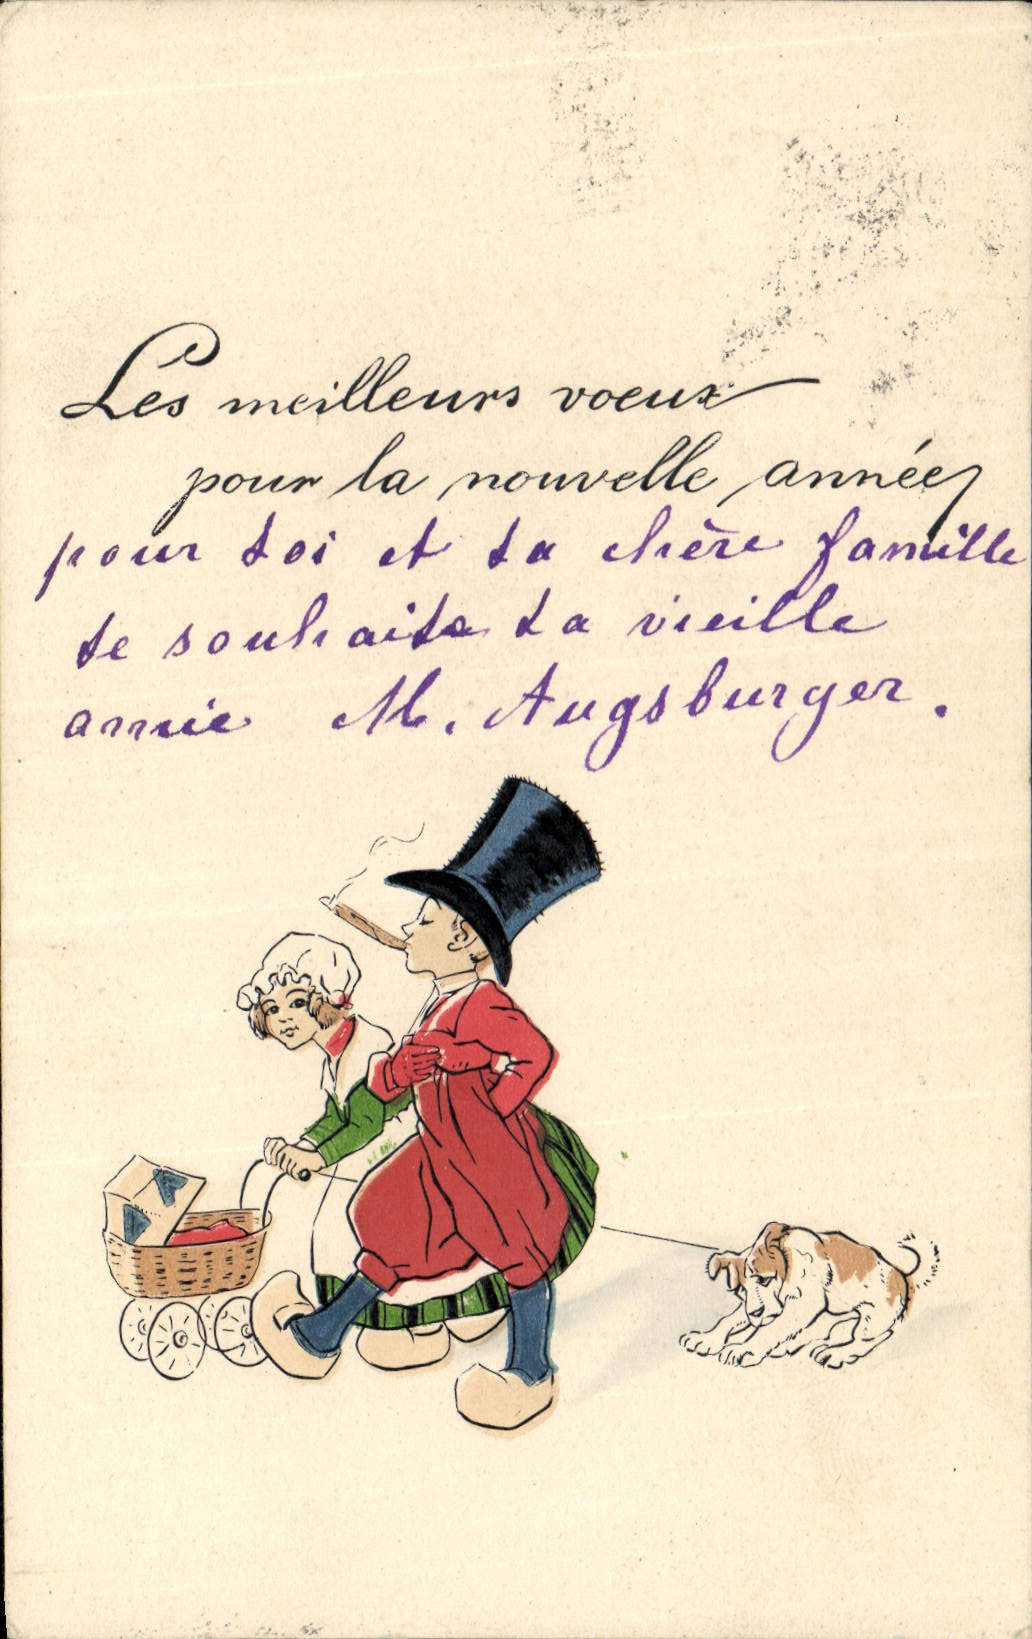 Les meilleurs voeux
pour la nouvelle année
pour toi et ta chère famille
te souhaite ta vieille
amie M. Augsburger.